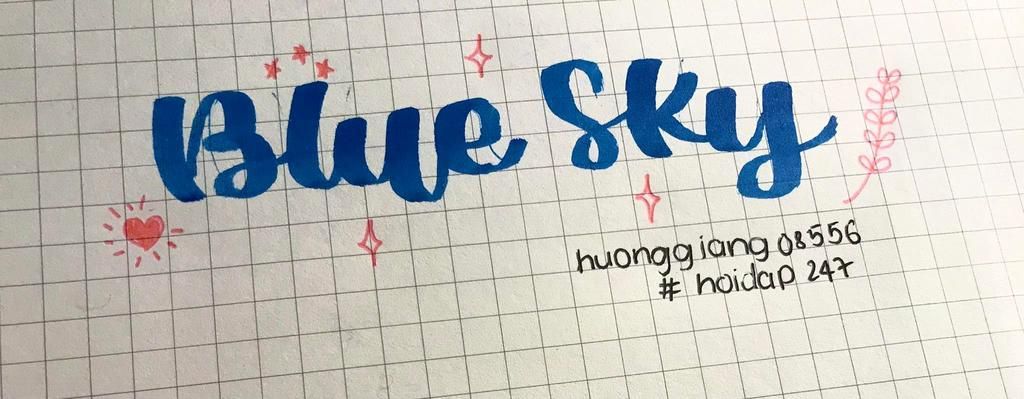 Blue Sky
huonggiang08556
# hoidap 247